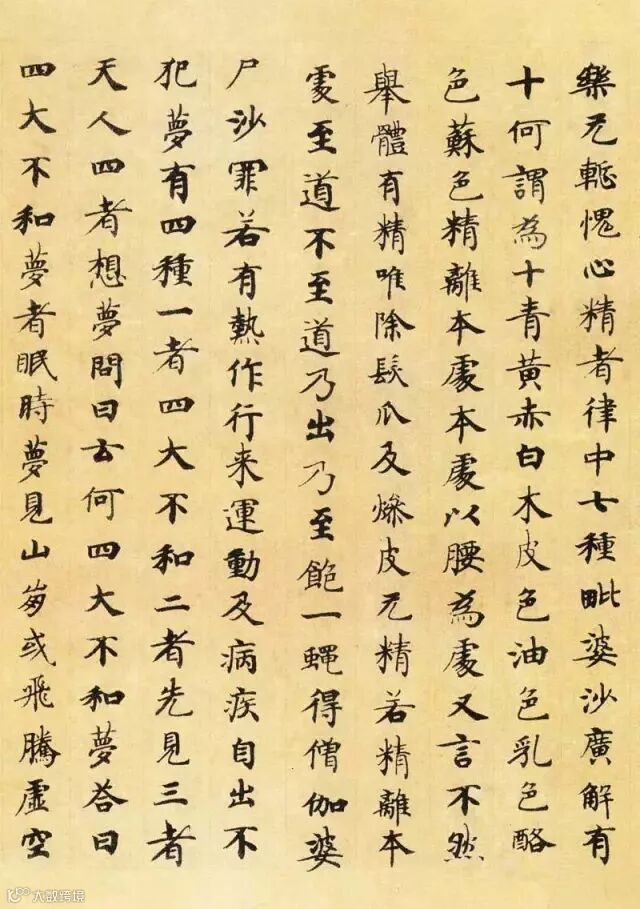 樂无慙愧心精者律中七種毗婆沙廣解有
十何謂為十青黃赤白木皮色油色乳色酪
色蘇色精離本處本處以腰為處又言不然
舉體有精唯除髮爪及燥皮无精若精離本
處至道不至道乃出乃至飽一蠅得僧伽婆
尸沙罪若有熱作行来運動及病疾自出不
犯夢有四種一者四大不和二者先見三者
天人四者想夢問曰云何四大不和夢答曰
四大不和夢者眠時夢見山崩或飛騰虛空
大数跨境